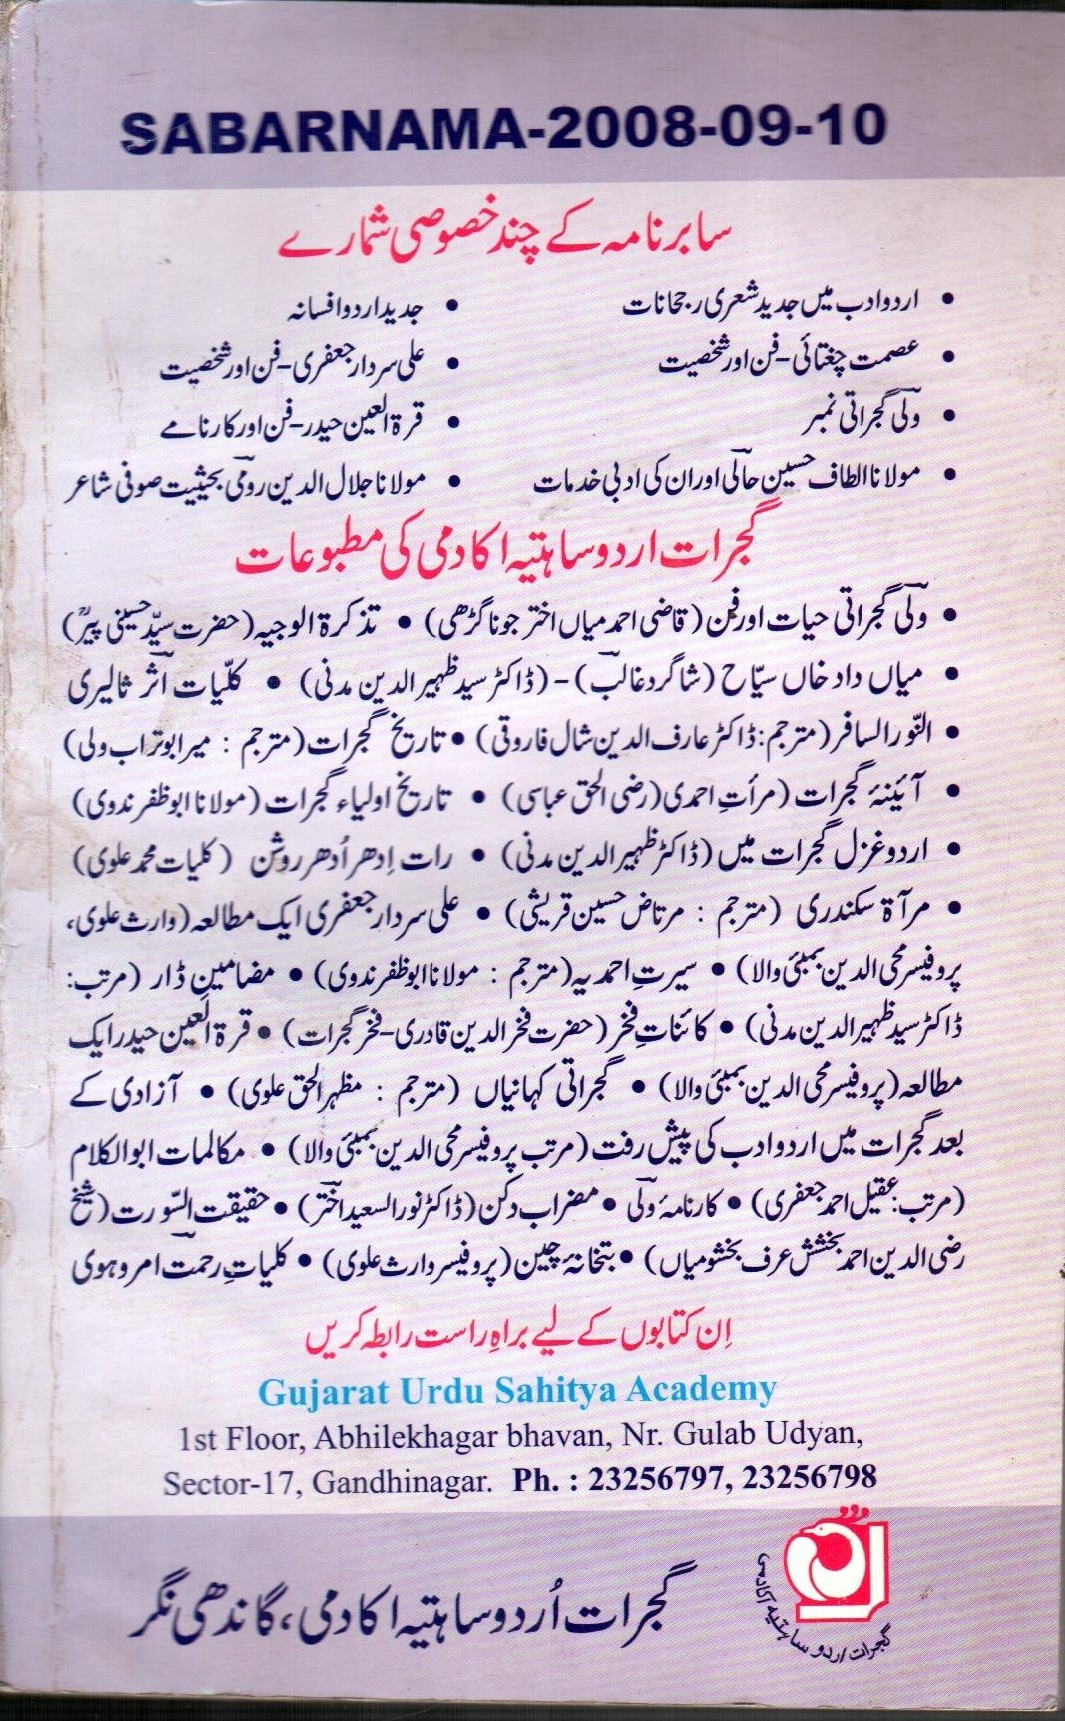 SABARNAMA-2008-09-10
سابرنامہ کے چند خصوصی شمارے
• اردو ادب میں جدید شعری رجحانات • جدید اردو افسانہ
• عصمت چغتائی - فن اور شخصیت • علی سردار جعفری - فن اور شخصیت
• ولیؔ گجراتی نمبر • قرۃ العین حیدر - فن اور کارنامے
• مولانا الطاف حسین حالیؔ اور ان کی ادبی خدمات • مولانا جلال الدین رومیؔ بحیثیت صوفی شاعر
گجرات اردو ساہتیہ اکادمی کی مطبوعات
• ولیؔ گجراتی حیات اور فن (قاضی احمد میاں اختر جوناگڑھی) • تذکرۃ الوجیہ (حضرت سیّد حسینی پیرؒ)
• میاں داد خاں سیّاح (شاگرد غالبؔ) - (ڈاکٹر سید ظہیر الدین مدنی) • کلّیات اثرؔ ثالیری
• النّور السافر (مترجم: ڈاکٹر عارف الدین شال فاروقی) • تاریخ گجرات (مترجم : میر ابو تراب ولی)
• آئینۂ گجرات (مرأتِ احمدی (رضی الحق عباسی) • تاریخ اولیاء گجرات (مولانا ابوظفر ندوی)
• اردو غزل گجرات میں (ڈاکٹر ظہیر الدین مدنی) • رات اِدھر اُدھر روشن (کلیات محمد علوی)
• مرآۃ سکندری (مترجم : مرتاض حسین قریشی) • علی سردار جعفری ایک مطالعہ (وارث علوی،
پروفیسر محی الدین بمبئی والا) • سیرتِ احمدیہ (مترجم : مولانا ابوظفر ندوی) • مضامینِ ڈار (مرتب:
ڈاکٹر سید ظہیر الدین مدنی) • کائناتِ فخر (حضرت فخر الدین قادری - فخر گجرات) • قرۃ العین حیدر ایک
مطالعہ (پروفیسر محی الدین بمبئی والا) • گجراتی کہانیاں (مترجم : مظہر الحق علوی) • آزادی کے
بعد گجرات میں اردو ادب کی پیش رفت (مرتب پروفیسر محی الدین بمبئی والا) • مکالمات ابوالکلام
(مرتب: عقیل احمد جعفری) • کارنامۂ ولیؔ • مضراب دکن (ڈاکٹر نور السعید اخترؔ) • حقیقت السّورت (شیخ
رضی الدین احمد بخشش عرف بخشومیاں) • بتخانۂ چین (پروفیسر وارث علوی) • کلیاتِ رحمتؔ امروہوی
اِن کتابوں کے لیے براہِ راست رابطہ کریں
Gujarat Urdu Sahitya Academy
1st Floor, Abhilekhagar bhavan, Nr. Gulab Udyan,
Sector-17, Gandhinagar. Ph. : 23256797, 23256798
گجرات اُردو ساہتیہ اکادمی، گاندھی نگر
گجرات اردو ساہتیہ اکادمی